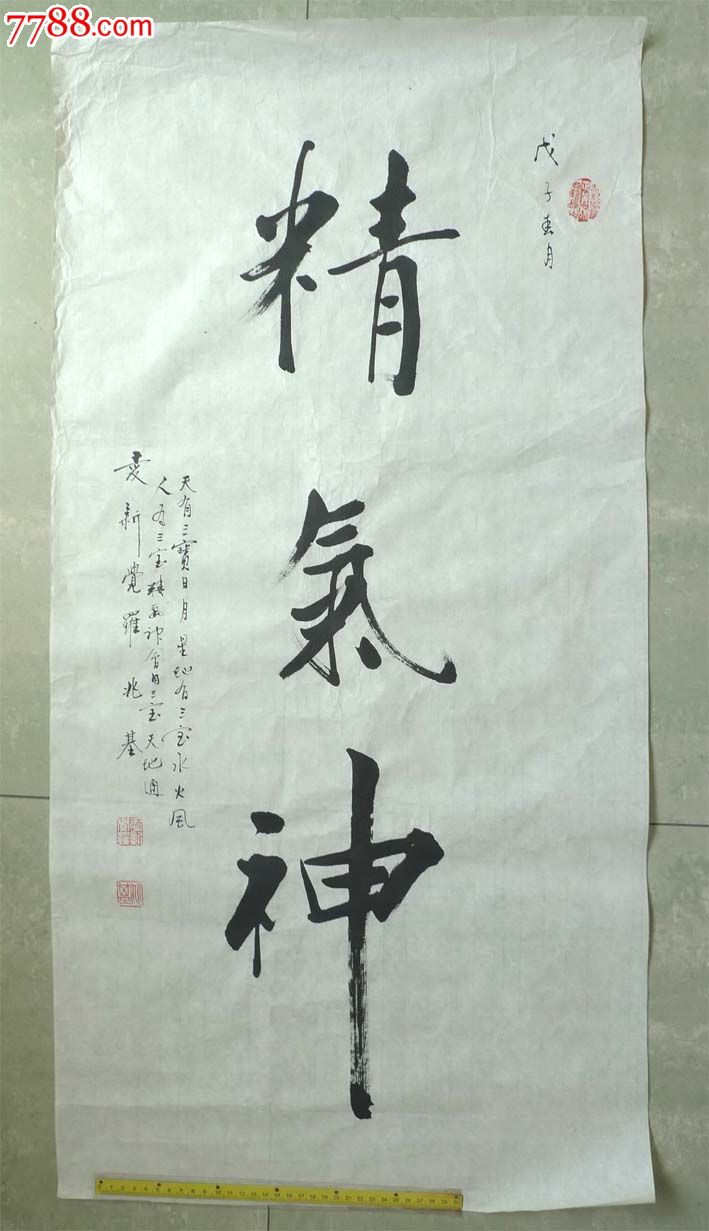 7788.com
戊子春月
精氣神
天有三寶日月星地有三宝水火风
人有三宝精氣神會用三宝天地通
愛新覺羅兆基